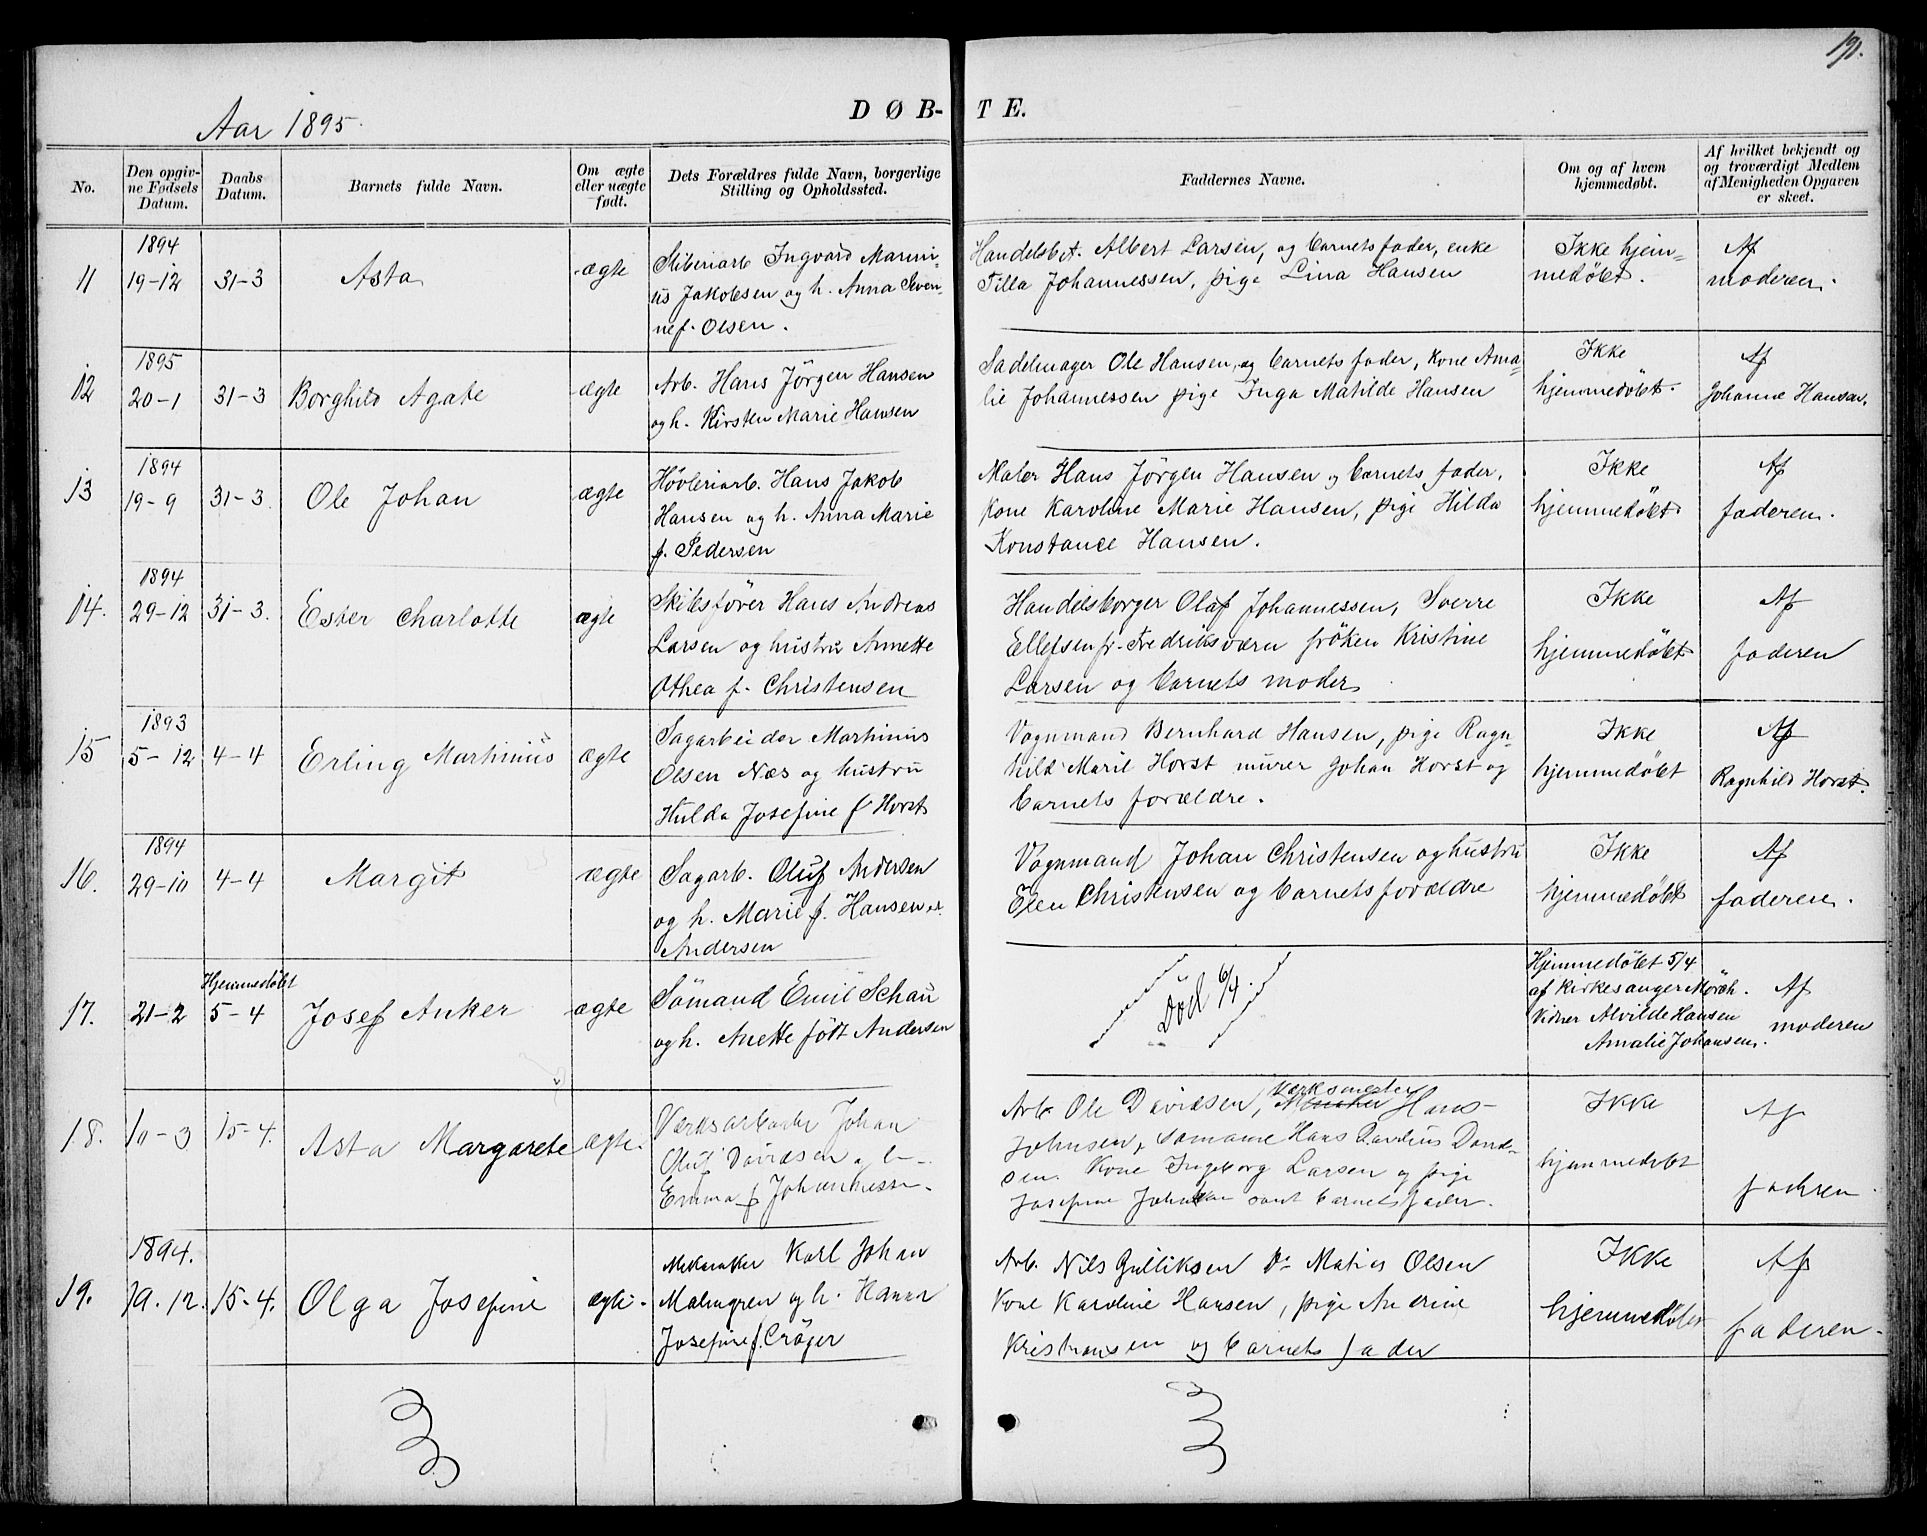 191.
Aar 1895.
DØB-
TE.
No.
Den opgiv-
ne Fødsels
Datum.
Daabs
Datum.
Barnets fulde Navn.
Om ægte
eller uægte
født.
Dets Forældres fulde Navn, borgerlige
Stilling og Opholdssted.
Faddernes Navne.
Om og af hvem
hjemmedøbt.
Af hvilket bekjendt og
og troværdigt Medlem
af Menigheden Opgaven
er skeet.
11
1894
19-12
31-3
Asta
ægte
Sliberiarb Ingvard Marini-
us Jakobsen og h. Anna
f. Olsen.
Handelsbet. Albert Larsen, og barnets fader, enke
Tilla Johannessen, pige Lina Hansen
Ikke hjem-
medøbt.
Af
moderen.
12
1895
20-1
31-3
Borghild Agate
ægte
Arb. Hans Jörgen Hansen
og h. Kirsten Marie Hansen
Sadelmager Ole Hansen, og barnets fader, kone Ama-
lie Johannessen pige Inga Matilde Hansen
Ikke
hjemmedøbt.
Af
Johanne Hansen.
13
1894
19-9
31-3.
Ole Johan
ægte
Høvleriarb. Hans Jakob
Hansen og h. Anna Marie
f. Pedersen
Maler Hans Jørgen Hansen og barnets fader,
kone Karoline Marie Hansen, pige Hilda
Konstance Hansen.
Ikke
hjemmedøbt
Af
faderen.
14.
1894
29-12
31-3.
Ester Charlotte
ægte
Skibsfører Hans Andreas
Larsen og hustru Annette
Othea f. Christensen
Handelsborger Olaf Johannessen, Sverre
Ellefsen fr. Fredriksværn fröken Kristine
Larsen og barnets moder
Ikke
hjemmedøbt
Af
faderen
15
1893
5-12
4-4
Erling Martinius
ægte
Sagarbeider Martinius
Olsen Næs og hustru
Hulda Josefine f Horst
Vognmand Bernhard Hansen, pige Ragn-
hild Marie Horst murer Johan Horst og
barnets forældre.
Ikke
hjemmedøbt
Af
Ragnhild Horst.
16.
1894
29-10
4-4
Margit
ægte
Sagarb. Oluf Andersen
og h. Marie f. Hansen
Andersen
Vognmand Johan Christensen og hustru
Elen Christensen og barnets forældre
Ikke
hjemmedøbt
Af
faderen.
17.
21-2
Hjemmedøbt
5-4
Josef Anker
ægte
Sømand Emil Schau
og h. Anette født Andersen
Død 6/4.
Hjemmedøbt 5/4
af Kirkesanger Mørch.
Vidner Alvilde Hansen
Amalie Johansen.
Af
moderen
18.
10-3
15-4.
Asta Margarete
ægte.
Johan
Oluf Davidsen
Emma f Johannessen.
Arb. Ole Davidsen, Værksmester Hans
Johnsen, Sømand Hans
sen. Kone Ingeborg Larsen og pige
Josefine samt barnets fader.
Ikke
hjemmedøbt
Af
faderen.
19.
1894.
19.12.
15-4.
Olga Josefine
ægte.
Karl Johan
Malmgren og h. Hanna
Josefine f. Crøger
Arb. Nils Gulliksen Do Matias Olsen
Kone Karoline Hansen, pige Andrine
Kristiansen og barnets fader
Ikke
hjemmedøbt
Af
faderen.